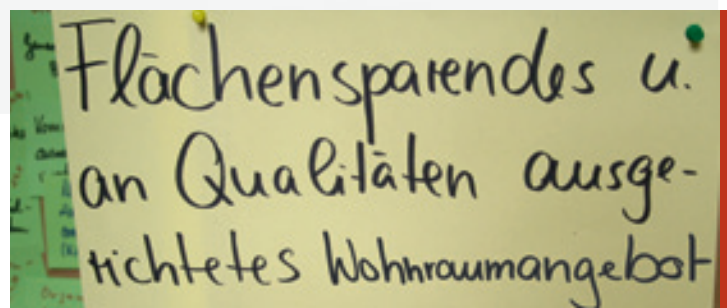 Flächensparendes u.
an Qualitäten ausge-
richtetes Wohnraumangebot